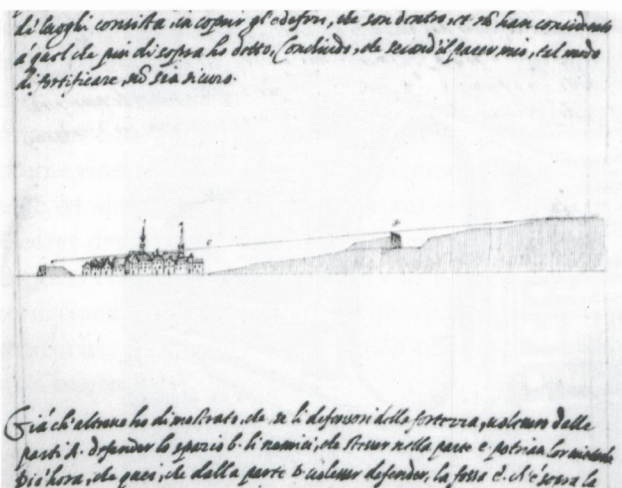 di luoghi consista in coprir gl'edifitij, che son dentro, et nõ han considerato
á quel che piu di sopra ho detto, Concludo, che second il parer mio, tal modo
di fortificare, nõ sia sicuro.
Giá ch'altroue ho dimostrato, che, se li defensori della fortezza, uolessero dalle
parti A. defender lo spazio b. li nemici, che stesser nella parte c. potrian
hora, che quei, che dalla parte b uolesser defender, la fossa è ch'è sopra la